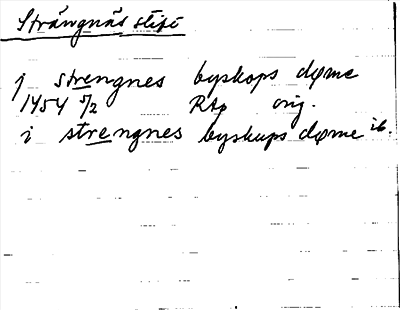 Strängnäs stift
j strengnes byskops døme
1454 5/2 RAp orig.
i strengnes byskups døme ib.